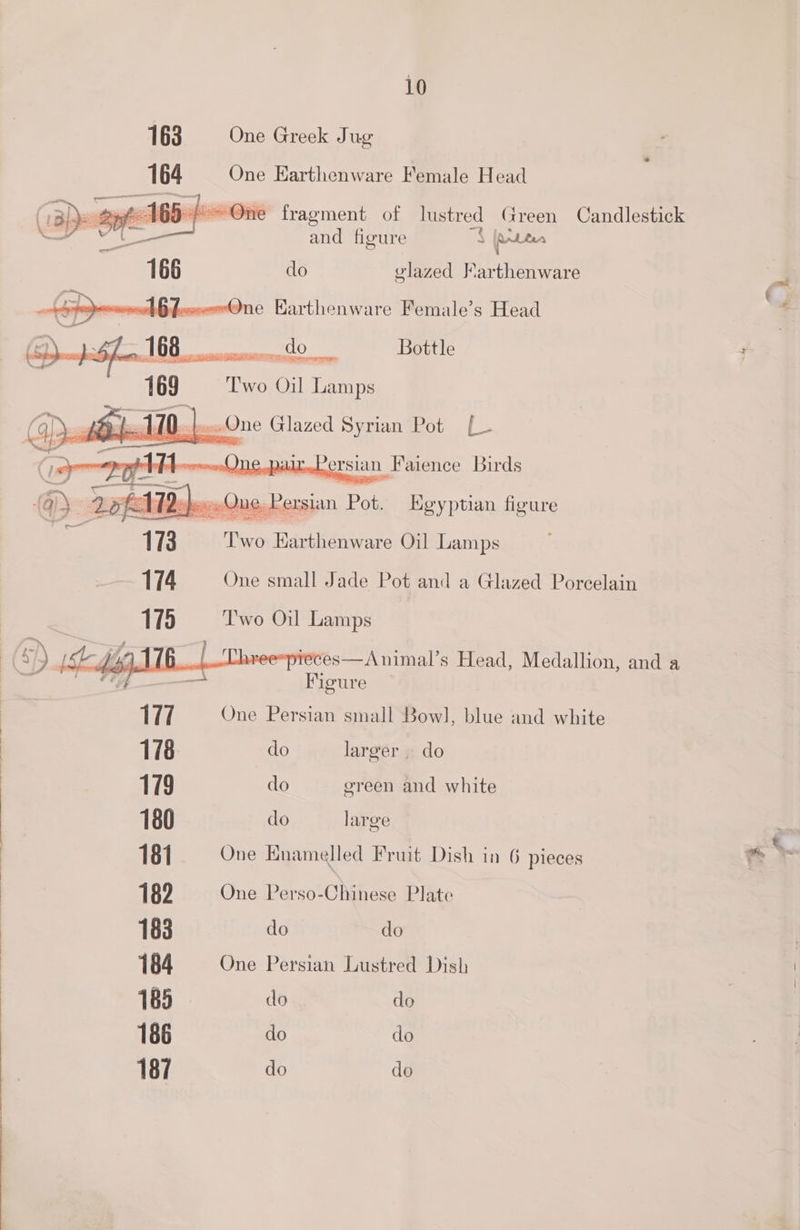 10
163 One Greek Jug
164 One Earthenware Female Head
165 One fragment of lustred Green Candlestick
and figure
166 do glazed Earthenware
167 One Earthenware Female's Head
168 do Bottle
169 Two Oil Lamps
170 One Glazed Syrian Pot
171 One pair Persian Faience Birds
172 One Persian Pot. Egyptian figure
173 Two Earthenware Oil Lamps
174 One small Jade Pot and a Glazed Porcelain
175 Two Oil Lamps
176 Three pieces—Animal's Head, Medallion, and a
Figure
177 One Persian small Bowl, blue and white
178 do larger do
179 do green and white
180 do large
181 One Enamelled Fruit Dish in 6 pieces
182 One Perso-Chinese Plate
183 do do
184 One Persian Lustred Dish
185 do do
186 do do
187 do do